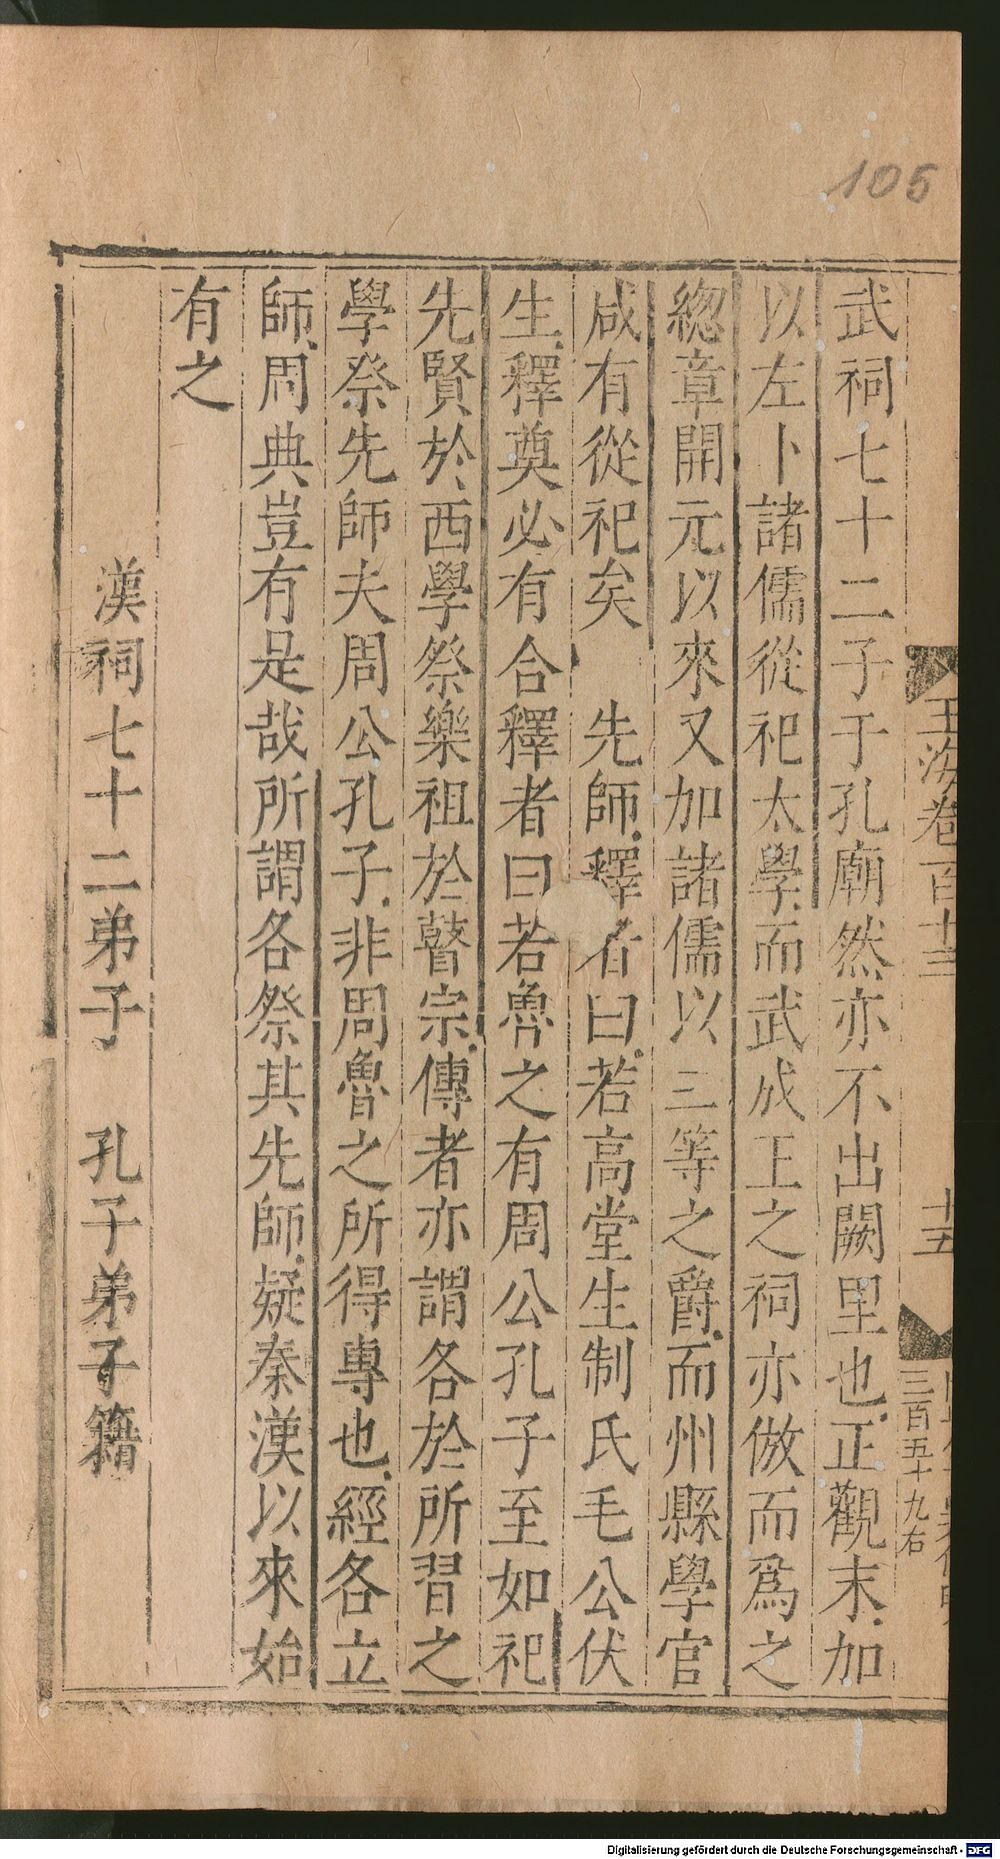 105
玉海卷百十三
十五
三百五十九右
武祠七十二子于孔廟然亦不出闕里也正觀末加
以左卜諸儒從祀太學而武成王之祠亦倣而爲之
緫章開元以來又加諸儒以三等之爵而州縣學官
咸有從祀矣　先師釋者曰若高堂生制氏毛公伏
生釋奠必有合釋者曰若魯之有周公孔子至如祀
先賢於西學祭樂祖於瞽宗傳者亦謂各於所習之
學祭先師夫周公孔子非周魯之所得專也經各立
師周典豈有是哉所謂各祭其先師疑秦漢以來始
有之
漢祠七十二弟子　孔子弟子籍
Digitalisierung gefördert durch die Deutsche Forschungsgemeinschaft - DFG